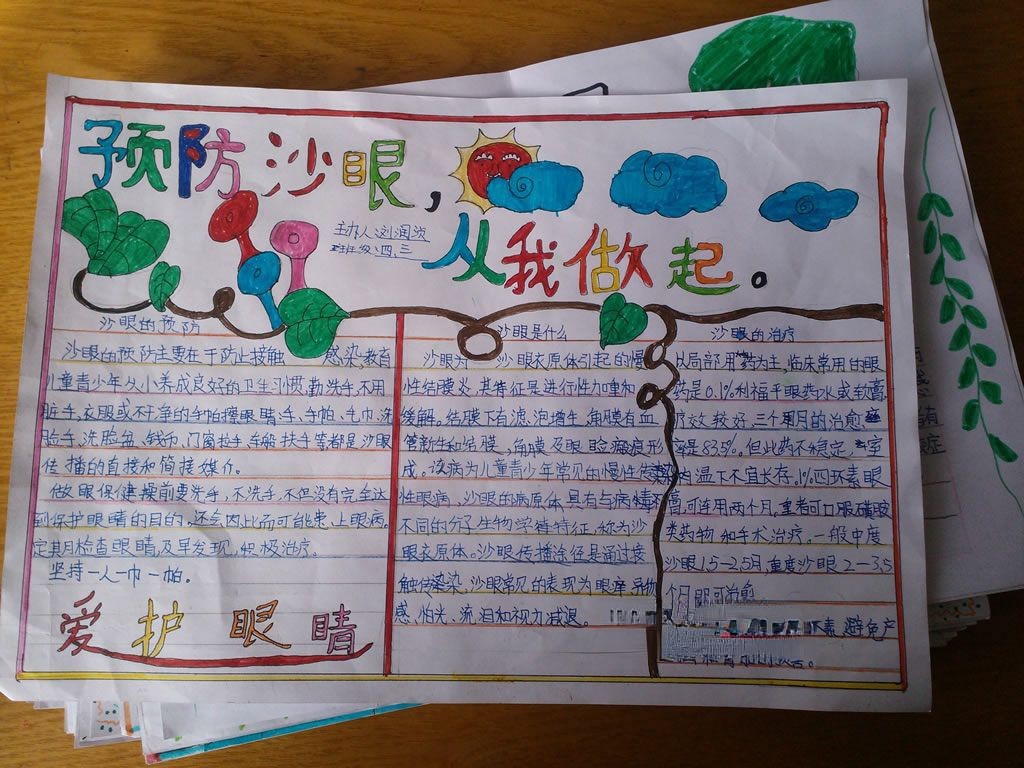 预防沙眼，
从我做起。
主办人刘润
班年级四、三
沙眼的预防
沙眼的预防主要在于防止接触 感染，教育
儿童青少年从小养成良好的卫生习惯，勤洗手，不用
脏手，衣服或不干净的手帕擦眼睛，手、手帕、毛巾、洗
脸手，洗脸盆、钱币、门窗扶手、车船扶手等都是沙眼
传播的直接和简接媒介。
做眼保健操前要洗手，不洗手，不但没有完全达
到保护眼睛的目的，还会因此而可能患上眼病。
定期检查眼睛，及早发现，积极治疗。
坚持一人一巾一帕。
爱护眼睛
沙眼是什么
沙眼为 沙眼衣原体引起的慢
性结膜炎，其特征是进行性加重和
缓解。结膜下有滤泡增生，角膜有血
管新生和结膜，角膜及眼睑瘢痕形
成。该病为儿童青少年常见的慢性传染
性眼病，沙眼的病原体具有与病毒
不同的分子生物学特征，称为沙
眼衣原体。沙眼传播途径是通过接
触传染，沙眼常见的表现为眼痒、异物
感、怕光、流泪和视力减退。
沙眼的治疗
以局部用药为主，临床常用的眼
药是0.1%利福平眼药水或软膏，
效较好，三个月的治愈
率是83.5%。但此药不稳定，室
内温下不宜长存。1%四环素眼
膏，可连用两个月，重者可口服磺胺
类药物和手术治疗。一般中度
沙眼1.5—2.5月，重度沙眼2—3.5
个月即可治愈
素，避免产